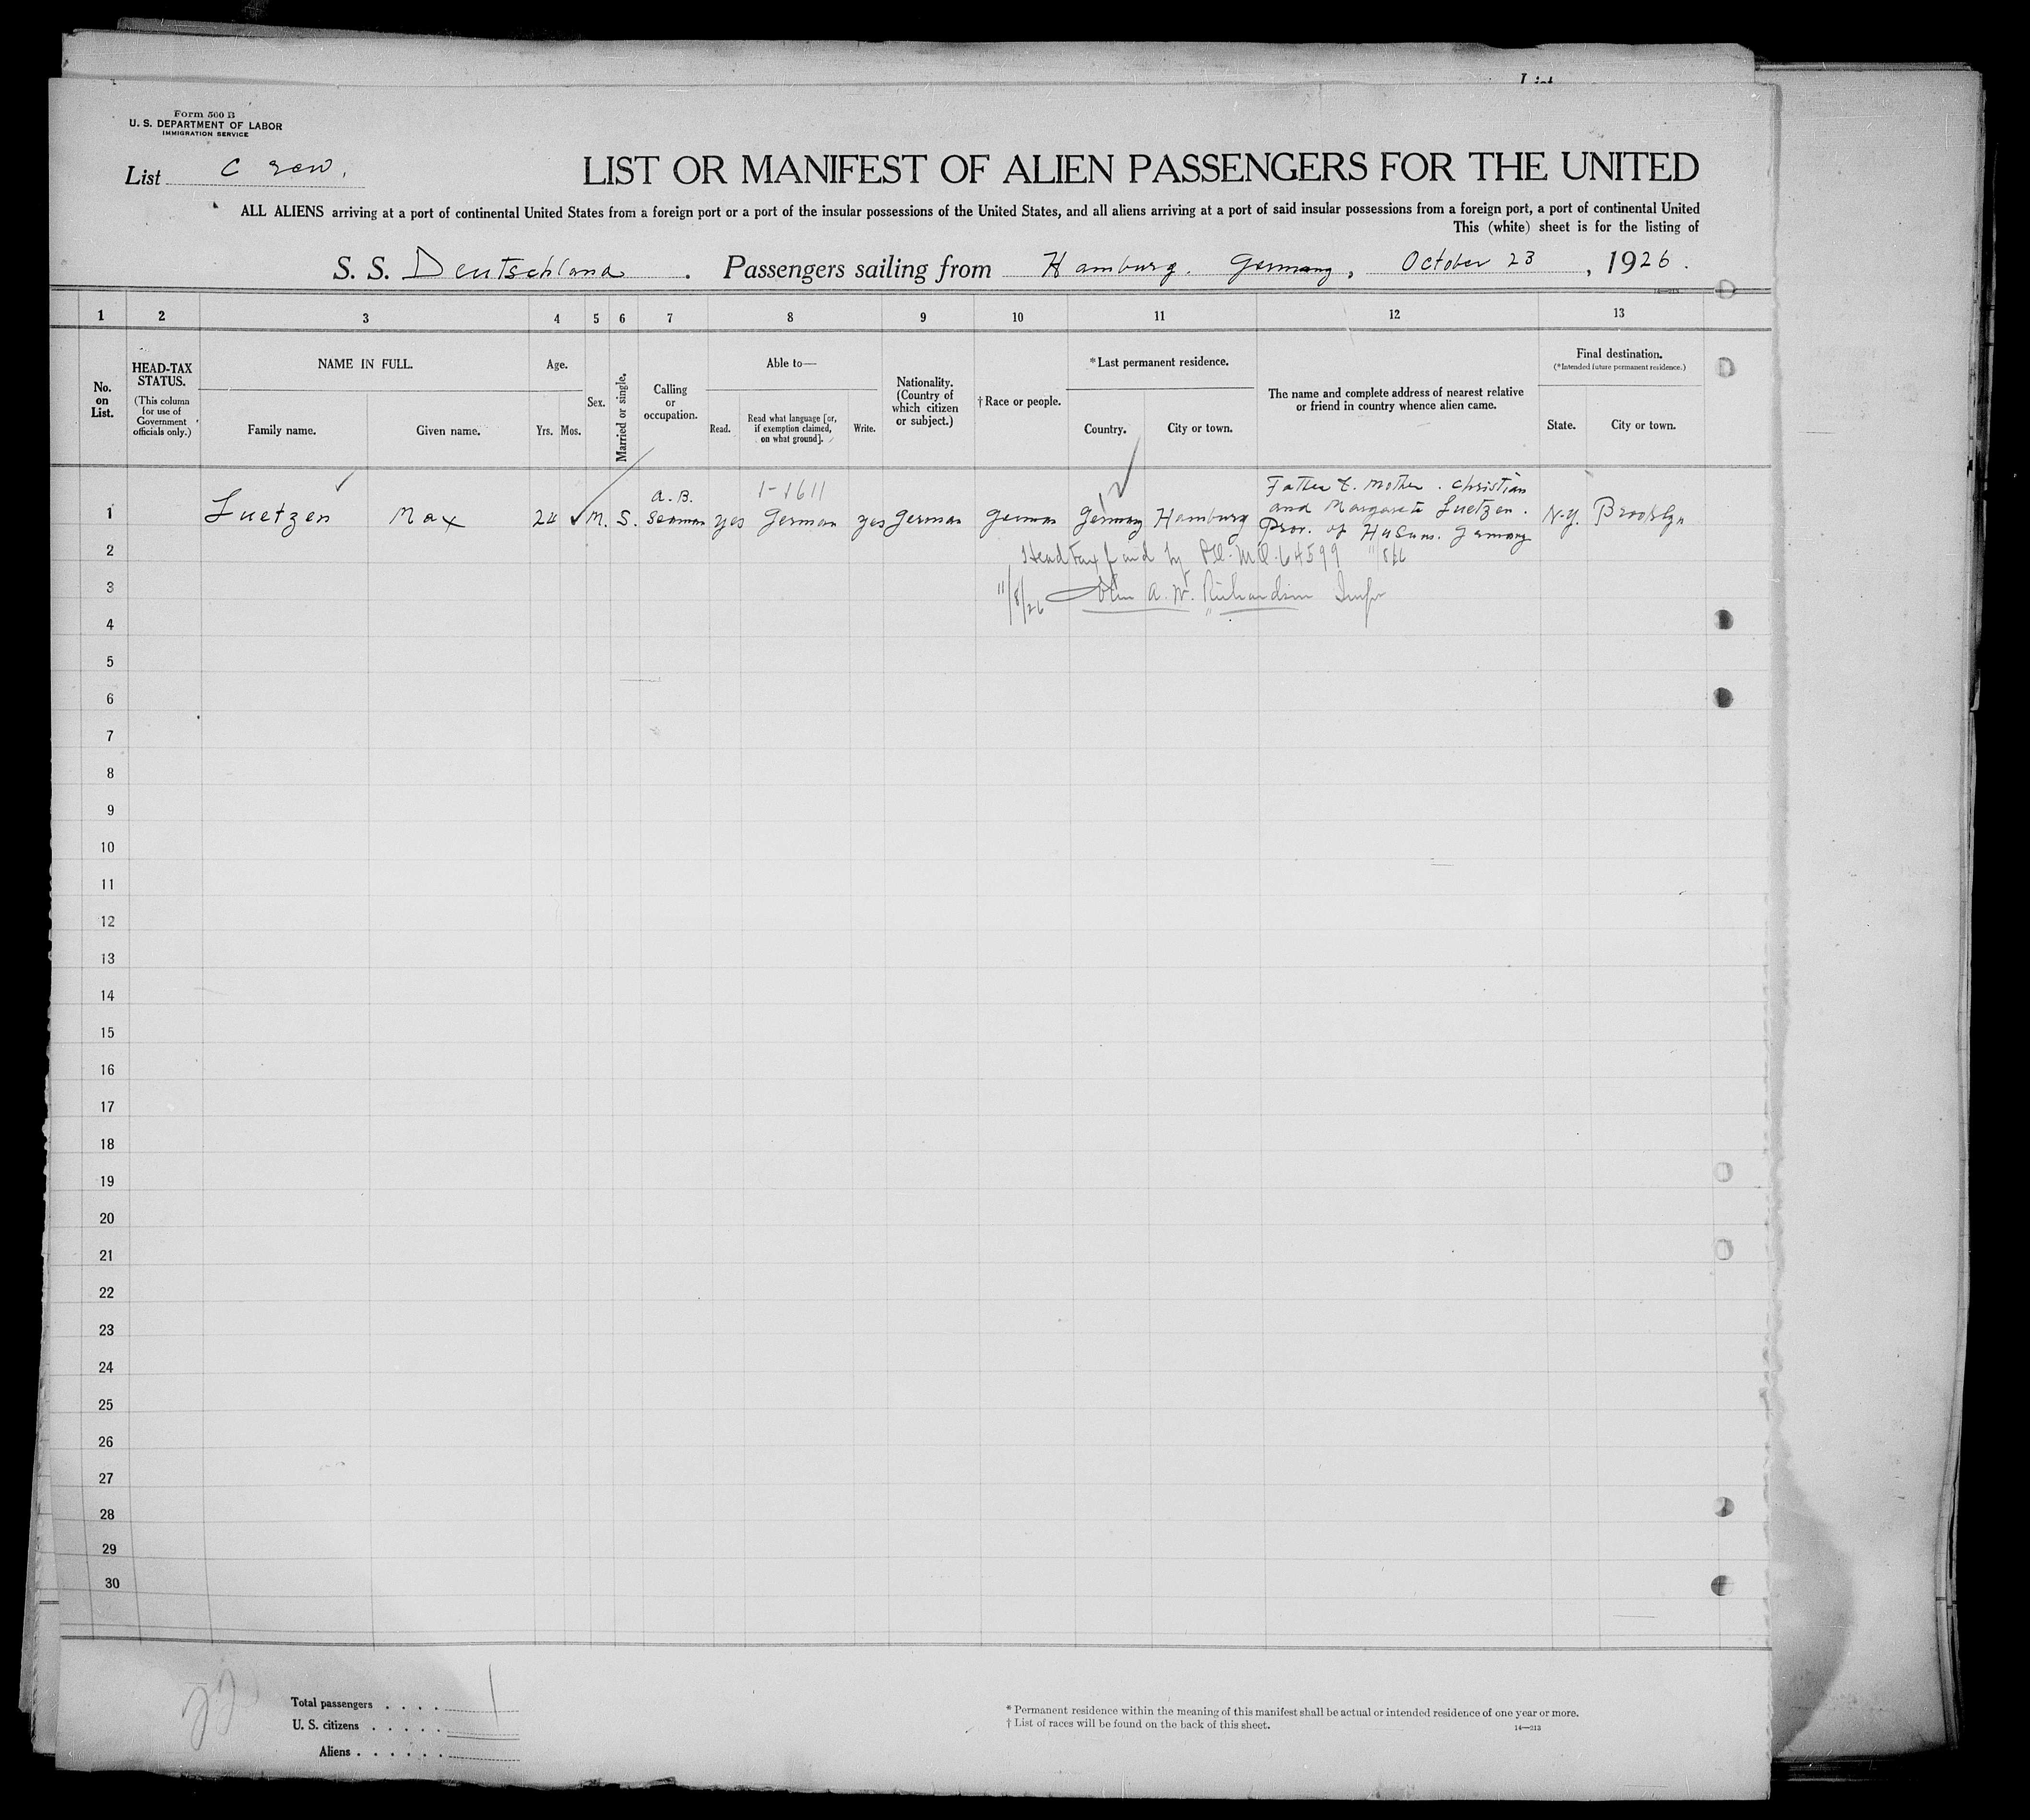 List
Form 500 B
U. S. DEPARTMENT OF LABOR
IMMIGRATION SERVICE
List Crew.
LIST OR MANIFEST OF ALIEN PASSENGERS FOR THE UNITED
ALL ALIENS arriving at a port of continental United States from a foreign port or a port of the insular possessions of the United States, and all aliens arriving at a port of said insular possessions from a foreign port, a port of continental United
This (white) sheet is for the listing of
S. S. Deutschland . Passengers sailing from Hamburg. Germany, October 23, 1926.
14—213
1 2 3 4 5 6 7 8 9 10 11 12 13
No. on List.
HEAD-TAX STATUS.
(This column for use of Government officials only.)
NAME IN FULL.
Family name. Given name.
Age.
Yrs. Mos.
Sex.
Married or single.
Calling or occupation.
Able to—
Read. Read what language [or, if exemption claimed, on what ground]. Write.
Nationality. (Country of which citizen or subject.)
† Race or people.
* Last permanent residence.
Country. City or town.
The name and complete address of nearest relative or friend in country whence alien came.
Final destination.
(* Intended future permanent residence.)
State. City or town.
1-1611
1 Luetzen Max 24 M. S. A.B. Seaman yes German yes German German Germany Hamburg Father & Mother. Christian and Margareta Luetzen. Prov. of Husum. Germany N.Y. Brooklyn
2 Head tax fund by 64599
3 11/8/26 A. W. Richardson Insp
4
5
6
7
8
9
10
11
12
13
14
15
16
17
18
19
20
21
22
23
24
25
26
27
28
29
30
Total passengers . . . . 1
U. S. citizens . . . . .
Aliens . . . . . .
* Permanent residence within the meaning of this manifest shall be actual or intended residence of one year or more.
† List of races will be found on the back of this sheet.
14—213